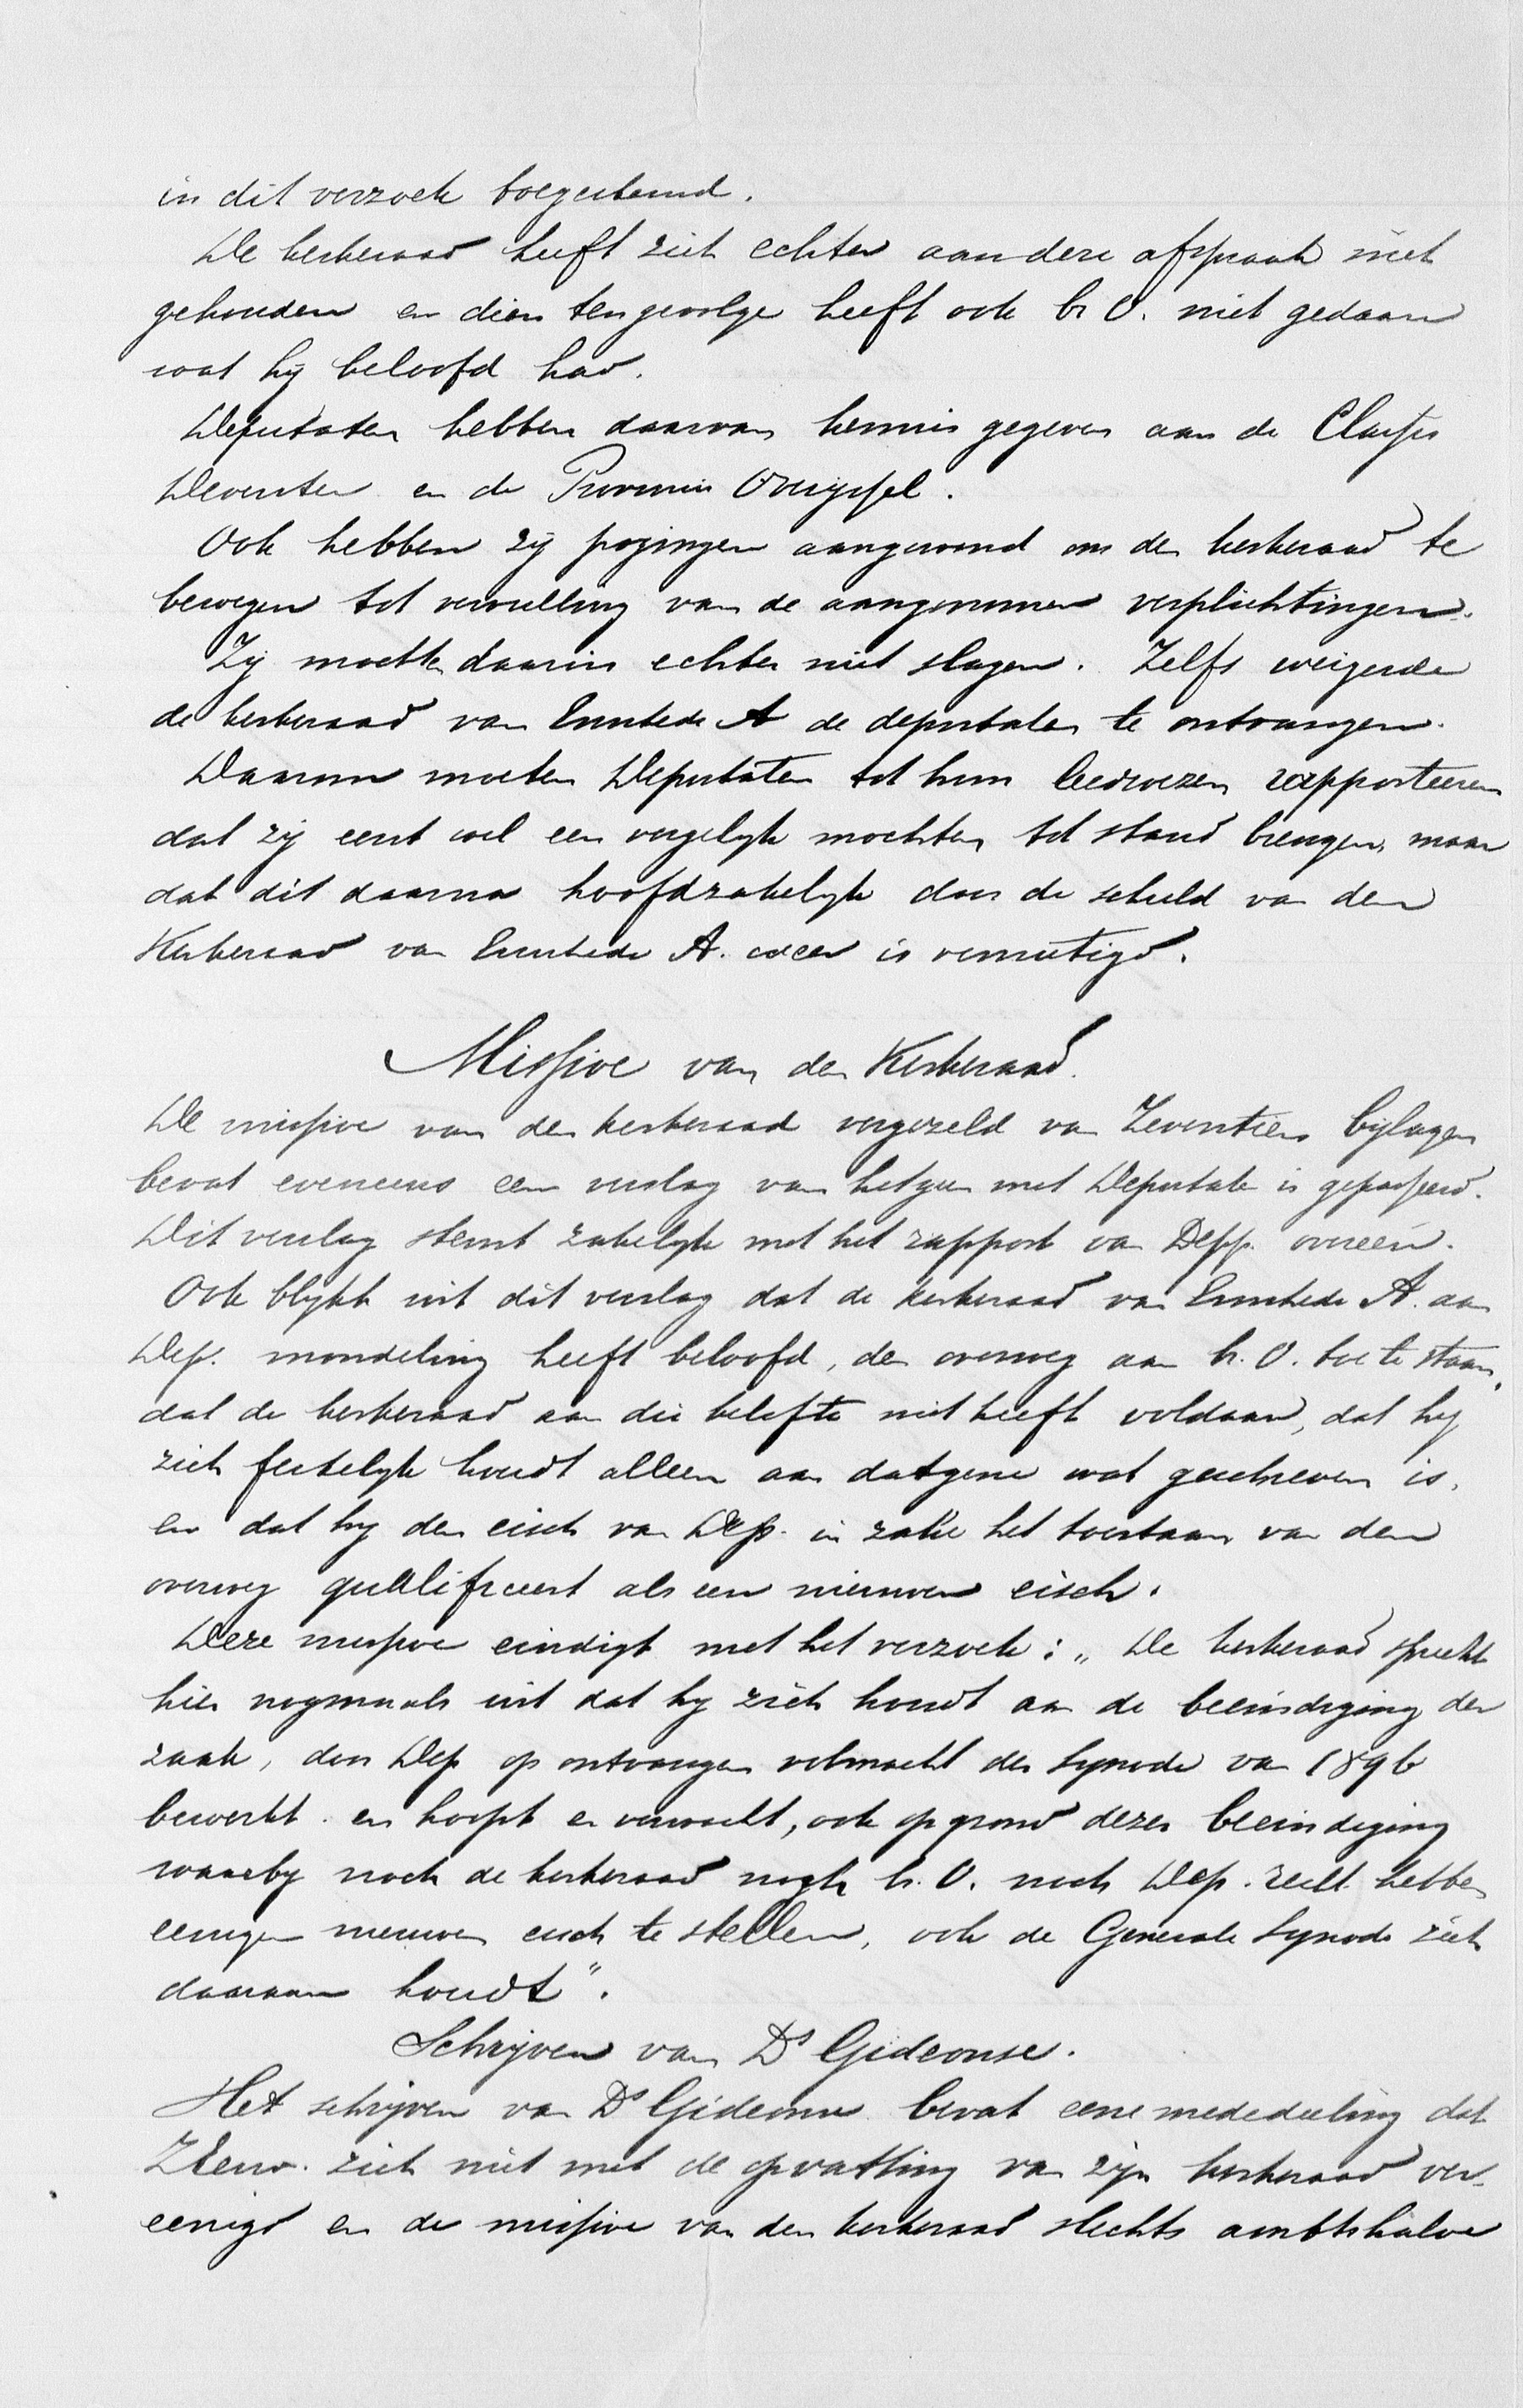 in dit verzoek toegestemd.
De kerkeraad heeft zich echter aan deze afspraak niet
gehouden en dien tengevolge heeft ook br O. niet gedaan
wat hij beloofd had.
Deputaten hebben daarvan kennis gegeven aan de Classis
Deventer en de Provincie Overijssel.
Ook hebben zij pogingen aangewend om den kerkeraad te
bewegen tot vervulling van de aangenomen verplichtingen.
Zij mochten daarin echter niet slagen. Zelfs weigerde
de kerkeraad van Enschede A de deputaten te ontvangen.
Daarom moeten Deputaten tot hun leedwezen rapporteeren
dat zij eerst wel een vergelijk mochten tot stand brengen, maar
dat dit daarna hoofdzakelijk door de schuld van den
Kerkeraad van Enschede A. weer is vernietigd.
Missive van den Kerkeraad.
De missive van den kerkeraad vergezeld van Zeventien bijlagen
bevat eveneens een verslag van hetgeen met Deputaten is gepasseerd.
Dit verslag stemt zakelijk met het rapport van Depp. overeen.
Ook blijkt uit dit verslag dat de kerkeraad van Enschede A. aan
Dep. mondeling heeft beloofd, den overweg aan br. O. toe te staan,
dat de kerkeraad aan die belofte niet heeft voldaan, dat hij
zich feitelijk houdt alleen aan datgene wat geschreven is,
en dat hij den eisch van Dep. in zake het toestaan van den
overweg qualificeert als een nieuwen eisch.
Deze missive eindigt met het verzoek: „De kerkeraad spreekt
hier nogmaals uit dat hij zich houdt aan de beëindiging der
zaak, door Dep op ontvangen volmacht der Synode van 1896
bewerkt en hoopt en verwacht, ook op grond dezer beëindiging
waarbij noch de kerkeraad noch br. O. noch Dep. recht hebben
eenigen nieuwen eisch te stellen, ook de Generale Synode zich
daaraan houdt".
Schrijven van Ds Gideonse.
Het schrijven van Ds Gideonse bevat eene mededeeling dat
ZEerw. zich niet met de opvatting van zijn kerkeraad ver-
eenigt en de missive van den kerkeraad slechts ambtshalve